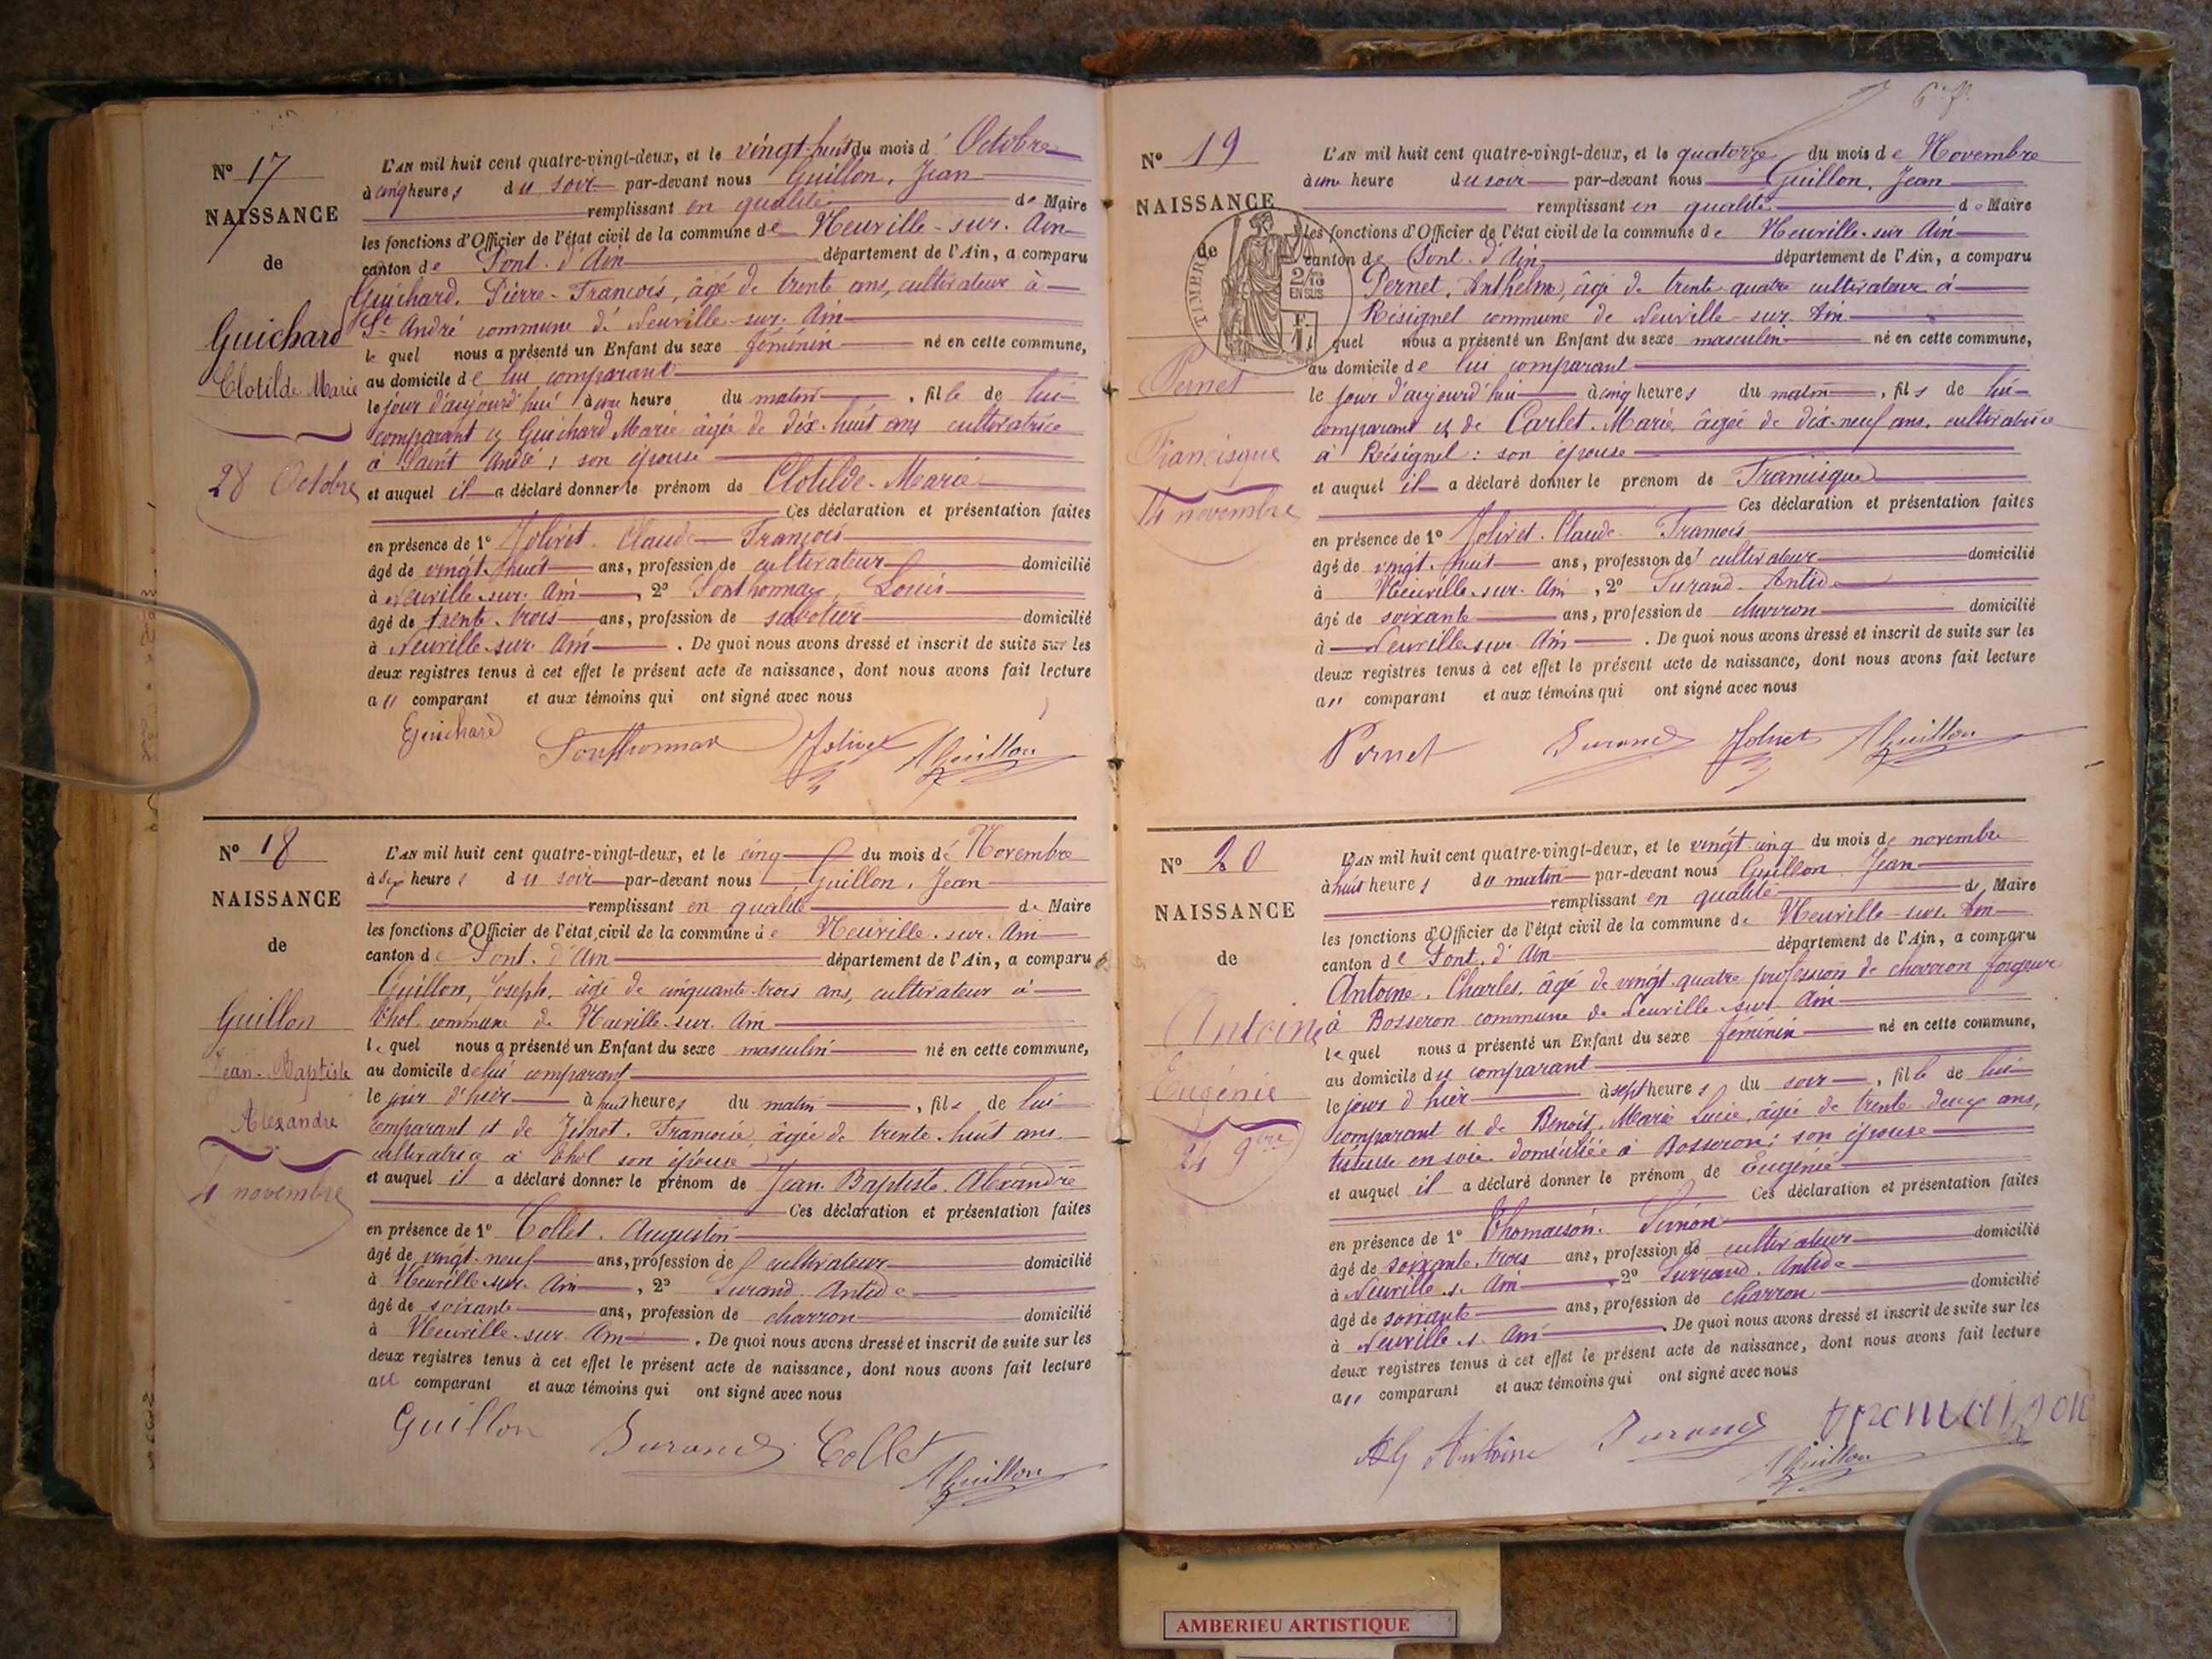 N° 17
NAISSANCE
de
Guichard
Clotilde Marie
28 Octobre
L'AN mil huit cent quatre-vingt-deux, et le vingt-huit du mois d'Octobre
à cinq heures du soir par-devant nous Guillon, Jean
remplissant en qualité de Maire
les fonctions d'Officier de l'état civil de la commune de Neuville-sur-Ain
canton de Pont-d'Ain département de l'Ain, a comparu
Guichard, Pierre-François, âgé de trente ans, cultivateur à
St André commune de Neuville-sur-Ain
le quel nous a présenté un Enfant du sexe féminin né en cette commune,
au domicile de lui comparant
le jour d'aujourd'hui à une heure du matin, fille de lui
comparant et Guichard Marie âgée de dix-huit ans cultivatrice
à Saint André; son épouse
et auquel il a déclaré donner le prénom de Clotilde-Marie
Ces déclaration et présentation faites
en présence de 1° Jolivet Claude François
âgé de vingt-huit ans, profession de cultivateur domicilié
à Neuville-sur-Ain, 2° Louis
âgé de trente-trois ans, profession de sabotier domicilié
à Neuville-sur-Ain. De quoi nous avons dressé et inscrit de suite sur les
deux registres tenus à cet effet le présent acte de naissance, dont nous avons fait lecture
au comparant et aux témoins qui ont signé avec nous
Guichard Jolivet Guillon
N° 18
NAISSANCE
de
Guillon
Jean-Baptiste
Alexandre
4 novembre
L'AN mil huit cent quatre-vingt-deux, et le cinq du mois de Novembre
à heures du soir par-devant nous Guillon, Jean
remplissant en qualité de Maire
les fonctions d'Officier de l'état civil de la commune de Neuville-sur-Ain
canton de Pont-d'Ain département de l'Ain, a comparu
Guillon, Joseph, âgé de cinquante-trois ans, cultivateur à
Thol commune de Neuville-sur-Ain
le quel nous a présenté un Enfant du sexe masculin né en cette commune,
au domicile de lui comparant
le jour d'hier à huit heures du matin, fils de lui
comparant et de Françoise, âgée de trente-huit ans
cultivatrice à Thol son épouse
et auquel il a déclaré donner le prénom de Jean-Baptiste-Alexandre
Ces déclaration et présentation faites
en présence de 1° Collet, Augustin
âgé de vingt-neuf ans, profession de cultivateur domicilié
à Neuville-sur-Ain, 2° Durand Antide
âgé de soixante ans, profession de charron domicilié
à Neuville-sur-Ain. De quoi nous avons dressé et inscrit de suite sur les
deux registres tenus à cet effet le présent acte de naissance, dont nous avons fait lecture
au comparant et aux témoins qui ont signé avec nous
Guillon Durand Collet Guillon
N° 19
NAISSANCE
de
TIMBRE
2/10
EN SUS
Pernet
Francisque
14 novembre
L'AN mil huit cent quatre-vingt-deux, et le quatorze du mois de Novembre
à une heure du soir par-devant nous Guillon, Jean
remplissant en qualité de Maire
les fonctions d'Officier de l'état civil de la commune de Neuville-sur-Ain
canton de Pont-d'Ain département de l'Ain, a comparu
Pernet, Anthelme, âgé de trente-quatre cultivateur à
Résignel commune de Neuville-sur-Ain
quel nous a présenté un Enfant du sexe masculin né en cette commune,
au domicile de lui comparant
le jour d'aujourd'hui à cinq heures du matin, fils de lui
comparant et de Carlet Marie âgée de dix-neuf ans, cultivatrice
à Résignel: son épouse
et auquel il a déclaré donner le prenom de Francisque
Ces déclaration et présentation faites
en présence de 1° Jolivet Claude François
âgé de vingt-huit ans, profession de cultivateur domicilié
à Neuville-sur-Ain, 2° Durand Antide
âgé de soixante ans, profession de charron domicilié
à Neuville-sur-Ain. De quoi nous avons dressé et inscrit de suite sur les
deux registres tenus à cet effet le présent acte de naissance, dont nous avons fait lecture
au comparant et aux témoins qui ont signé avec nous
Pernet Durand Jolivet Guillon
N° 20
NAISSANCE
de
Antoine
Eugénie
24 9bre
L'AN mil huit cent quatre-vingt-deux, et le vingt-cinq du mois de novembre
à huit heures du matin par-devant nous Guillon Jean
remplissant en qualité de Maire
les fonctions d'Officier de l'état civil de la commune de Neuville-sur-Ain
canton de Pont-d'Ain département de l'Ain, a comparu
Antoine, Charles, âgé de vingt-quatre profession de charron forgeur
à Bosseron commune de Neuville-sur-Ain
le quel nous a présenté un Enfant du sexe féminin né en cette commune,
au domicile du comparant
le jour d'hier à sept heures du soir, fille de lui
comparant et de Benoit, Marie Lucie, âgée de trente-deux ans,
tisseuse en soie domiciliée à Bosseron; son épouse
et auquel il a déclaré donner le prénom de Eugénie
Ces déclaration et présentation faites
en présence de 1° Thomaison Simon
âgé de soixante-trois ans, profession de cultivateur domicilié
à Neuville s. Ain, 2° Durand Antide
âgé de soixante ans, profession de charron domicilié
à Neuville s. Ain. De quoi nous avons dressé et inscrit de suite sur les
deux registres tenus à cet effet le présent acte de naissance, dont nous avons fait lecture
au comparant et aux témoins qui ont signé avec nous
Antoine Durand
Guillon
AMBERIEU ARTISTIQUE